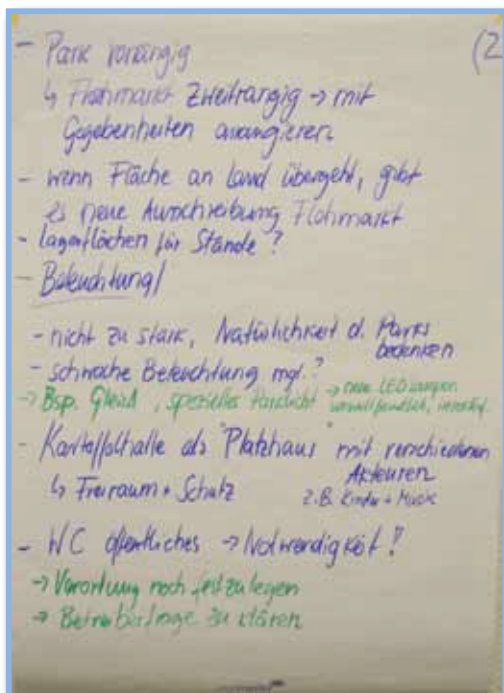 (2
- Park vorrangig
↳ Flohmarkt zweitrangig → mit
Gegebenheiten arrangieren
- wenn Fläche an Land übergeht, gibt
es neue Ausschreibung Flohmarkt
- Lagerflächen für Stände?
- Beleuchtung!
- nicht zu stark, Natürlichkeit d. Parks
bedenken
- schwache Beleuchtung mgl.?
→ Bsp. , spezielles → neue LED Lampen
umweltfreundlich,
- Kartoffelhalle als "Platzhaus" mit verschiedenen
Akteuren
↳ Freiraum + Schutz z.B. Kinder + Musik
- WC öffentliches → Notwendigkeit!
→ Verortung noch festzulegen
→ Betreiberfrage zu klären